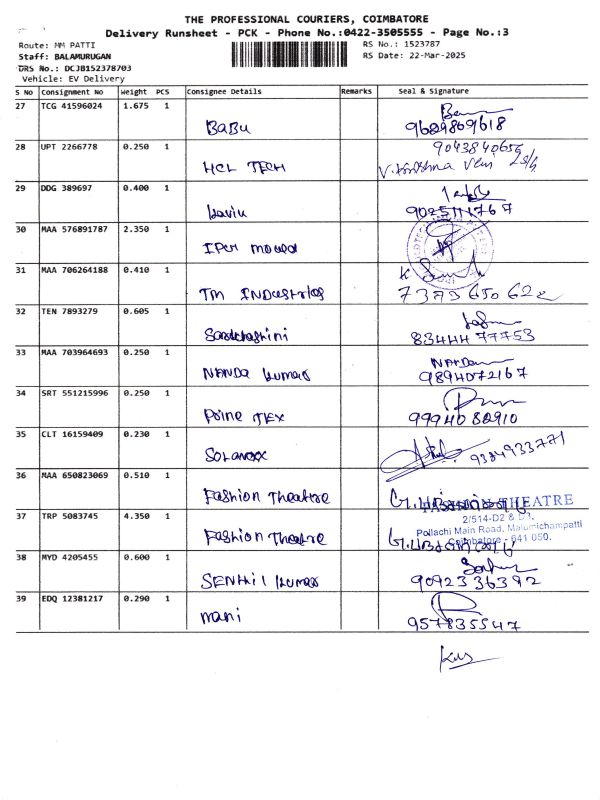 THE PROFESSIONAL COURIERS, COIMBATORE
Delivery Runsheet - PCK - Phone No.:0422-3505555 - Page No.:3
Route: MM PATTI
RS No.: 1523787
Staff: BALAMURUGAN
RS Date: 22-Mar-2025
DRS No.: DCJB152378703
Vehicle: EV Delivery
S No Consignment No Weight PCS Consignee Details Remarks Seal & Signature
27 TCG 41596024 1.675 1
BaBu 9689869618
28 UPT 2266778 0.250 1 9043840656
HCL TECH V. Krishna Veni
29 DDG 389697 0.400 1
Kaviu
30 MAA 576891787 2.350 1
31 MAA 706264188 0.410 1
TM INDustries 7373650622
32 TEN 7893279 0.605 1
8344477753
33 MAA 703964693 0.250 1 NANDa
NANDa kumar 9894072167
34 SRT 551215996 0.250 1
Poine TEX 9994082910
35 CLT 16159409 0.230 1
9384933771
36 MAA 650823069 0.510 1
Fashion Theatre FASHION THEATRE
37 TRP 5083745 4.350 1 2/514-D2 & D3,
Pollachi Main Road, Malumichampatti
Fashion Theatre Coimbatore - 641 050.
38 MYD 4205455 0.600 1
SENHil kumar 9092336392
39 EDQ 12381217 0.290 1
mani 957835547